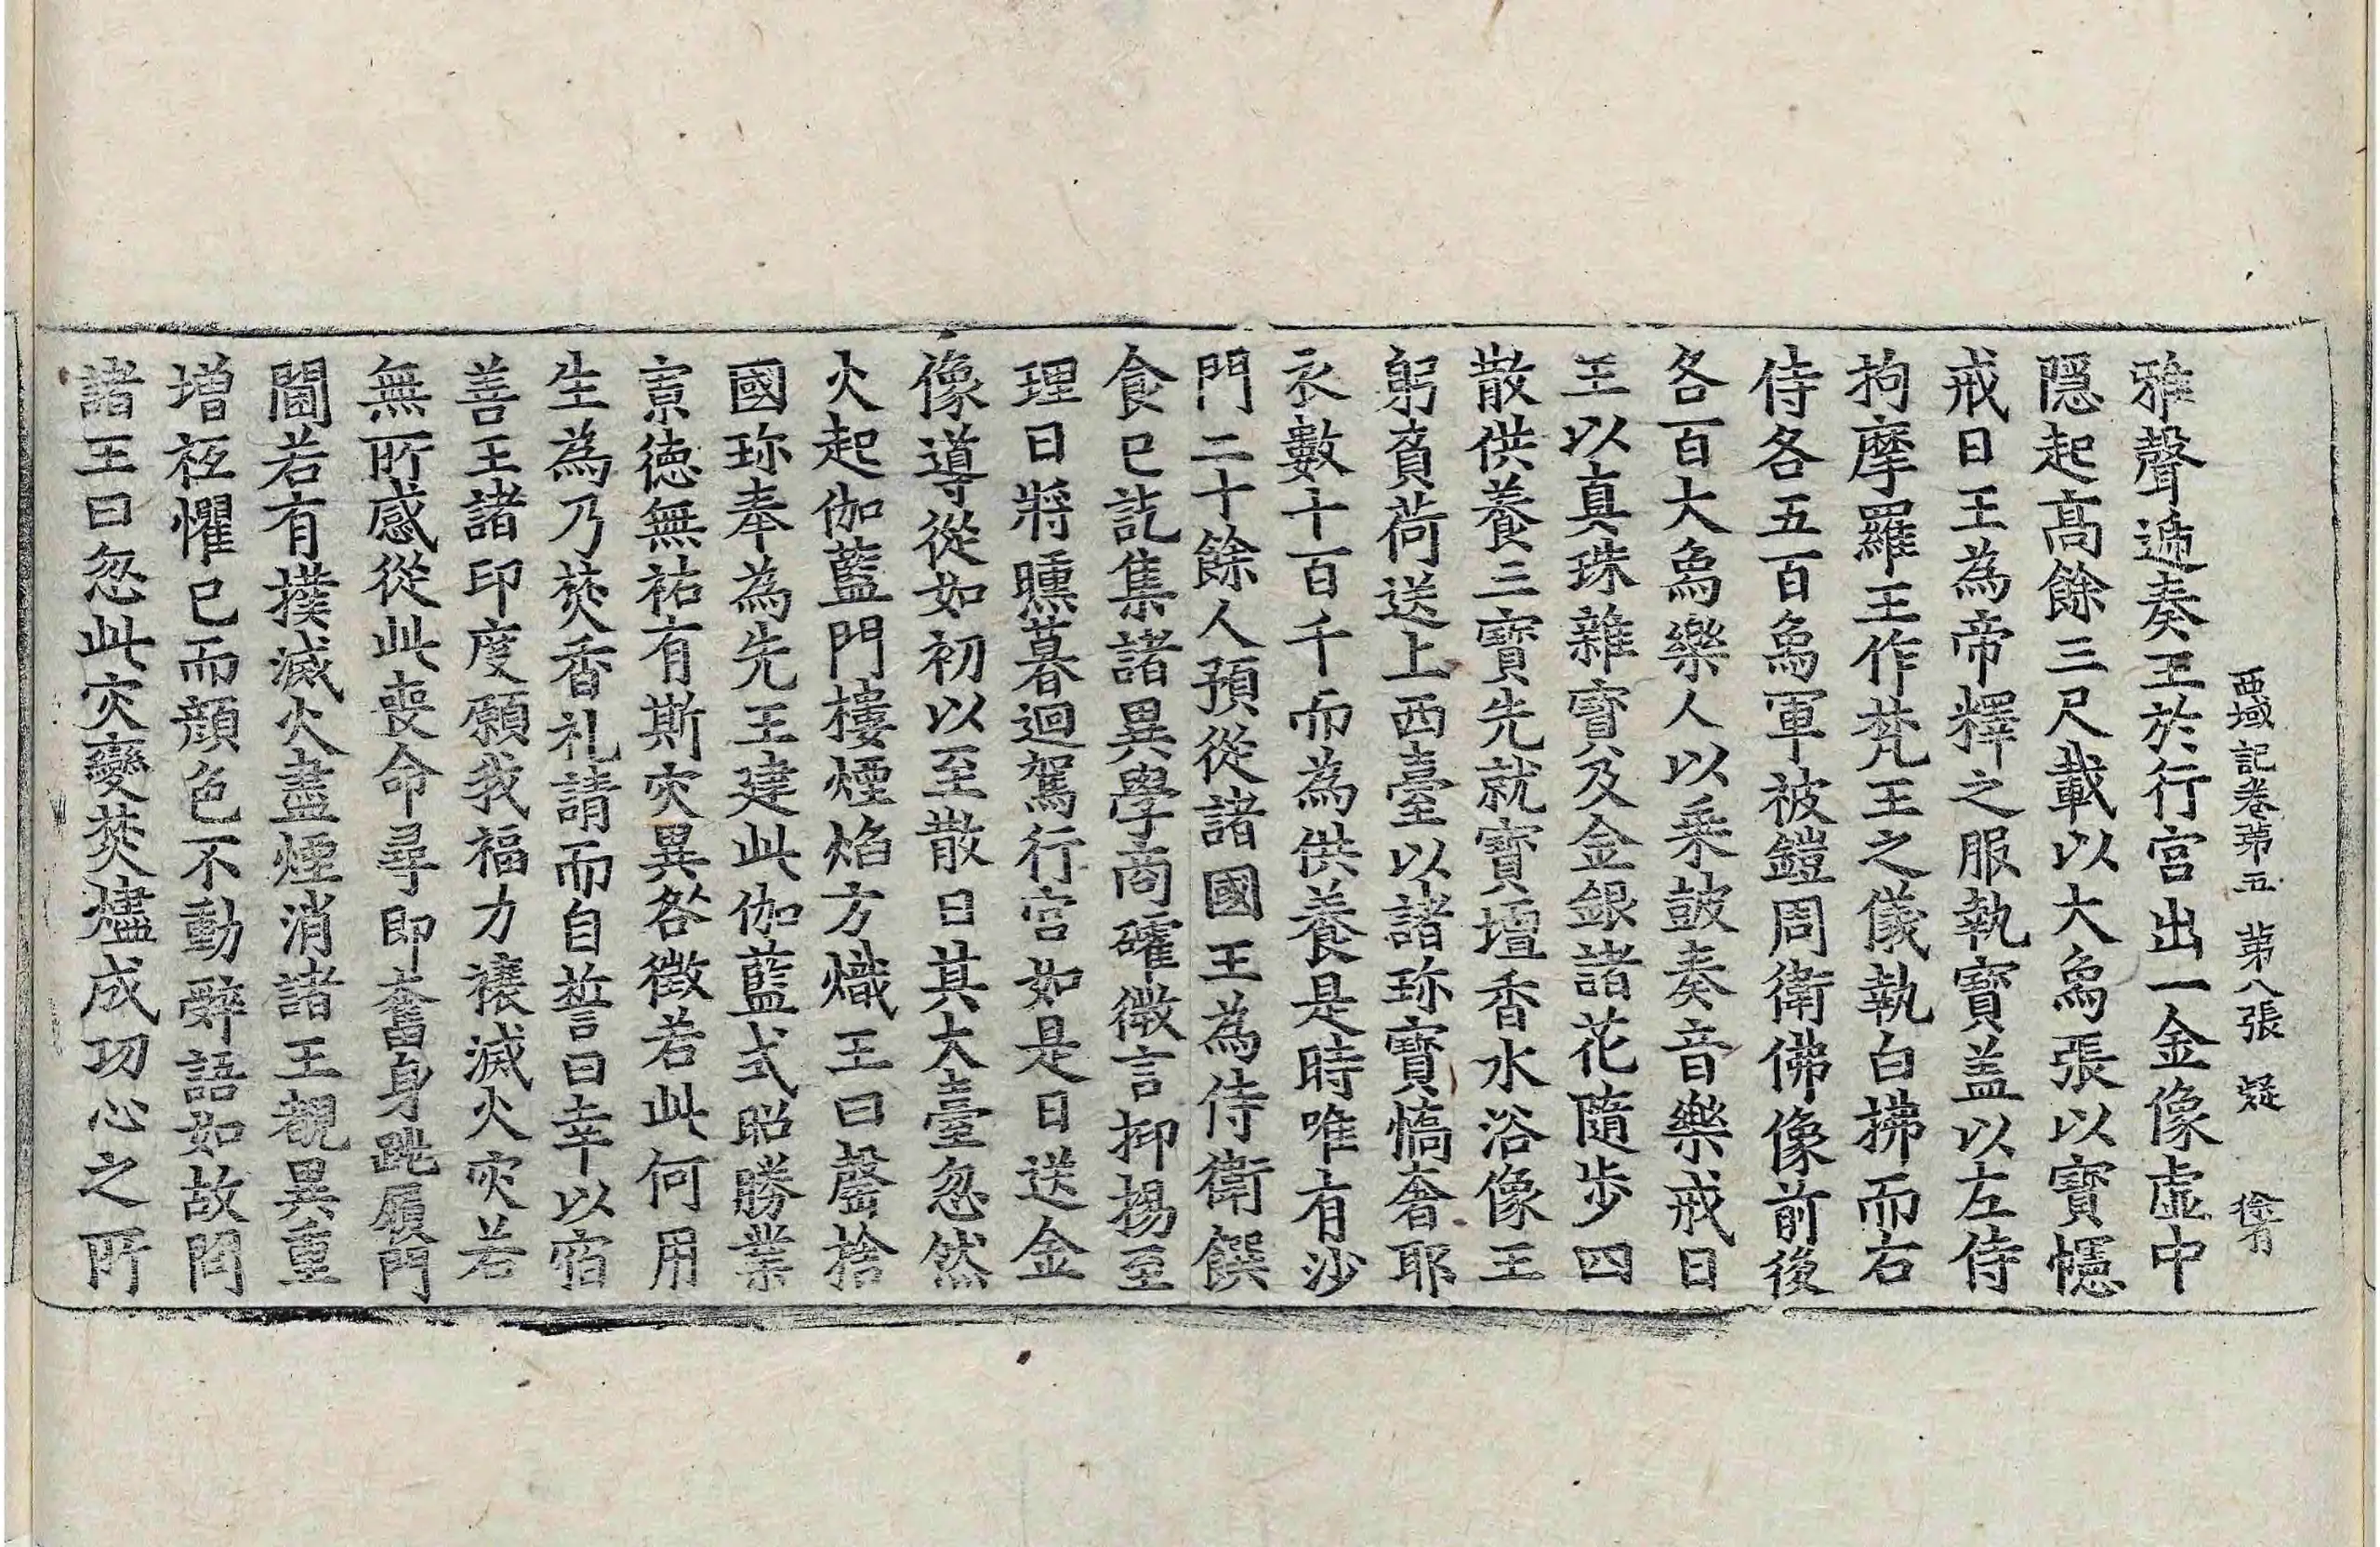 西域記卷第五 第八張 疑
雅聲遞奏王於行宮出一金像虛中
隱起高餘三尺載以大烏張以寶幰
戒日王為帝釋之服執寶盖以左侍
拘摩羅王作梵王之儀執白拂而右
侍各五百烏軍被鎧周衛佛像前後
各百大烏樂人以乘鼓奏音樂戒日
王以真珠雜寶及金銀諸花隨步四
散供養三寶先就寶壇香水浴像王
躬負荷送上西臺以諸珎寶憍奢耶
衣數十百千而為供養是時唯有沙
門二十餘人預從諸國王為侍衛饌
食已訖集諸異學商礭微言抑揚至
理日將曛暮迴駕行宮如是日送金
像導從如初以至散日其大臺忽然
火起伽藍門樓煙焰方熾王曰罄捨
國珎奉為先王建此伽藍式昭勝業
寡德無祐有斯灾異咎徵若此何用
生為乃焚香礼請而自誓曰幸以宿
善王諸印度願我福力禳滅火灾若
無所感從此喪命尋即奮身跳履門
閫若有撲滅火盡煙消諸王覩異重
增祗懼已而顏色不動辭語如故問
諸王曰忽此灾變焚燼成功心之所